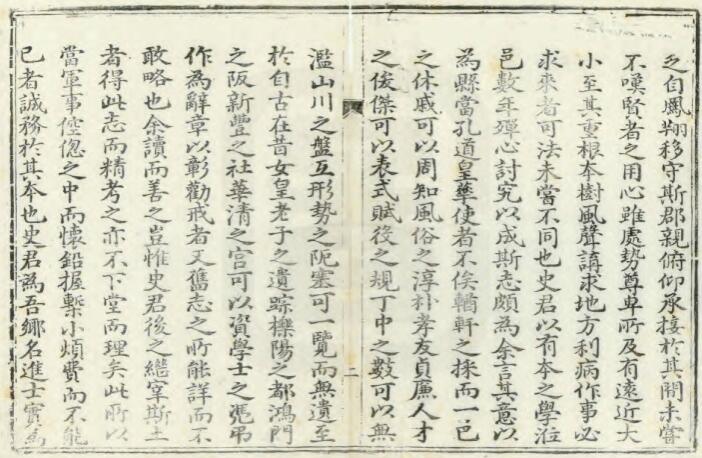 乏自鳳翔移守斯郡親俯仰承接於其間未嘗
不嘆賢者之用心雖處勢尊卑所及有遠近大
小至其重根本樹風聲講求地方利病作事必
求來者可法未嘗不同也史君以有本之學涖
邑數年殫心討究以成斯志頗為余言其意以
為縣當孔道皇華使者不俟輶軒之採而一邑
之休戚可以周知風俗之淳朴孝友貞廉人才
之俊傑可以表式賦役之規丁中之數可以無
二
濫山川之盤互形勢之阨塞可一覽而無遺至
於自古在昔女皇老子之遺踪櫟陽之都鴻門
之阪新豐之社華清之宮可以資學士之憑弔
作為辭章以彰勸戒者又舊志之所能詳而不
敢略也余讀而善之豈惟史君後之繼宰斯土
者得此志而精考之亦不下堂而理矣此所以
當軍事倥傯之中而懷鉛握槧小煩費而不能
已者誠務於其本也史君為吾鄉名進士實為